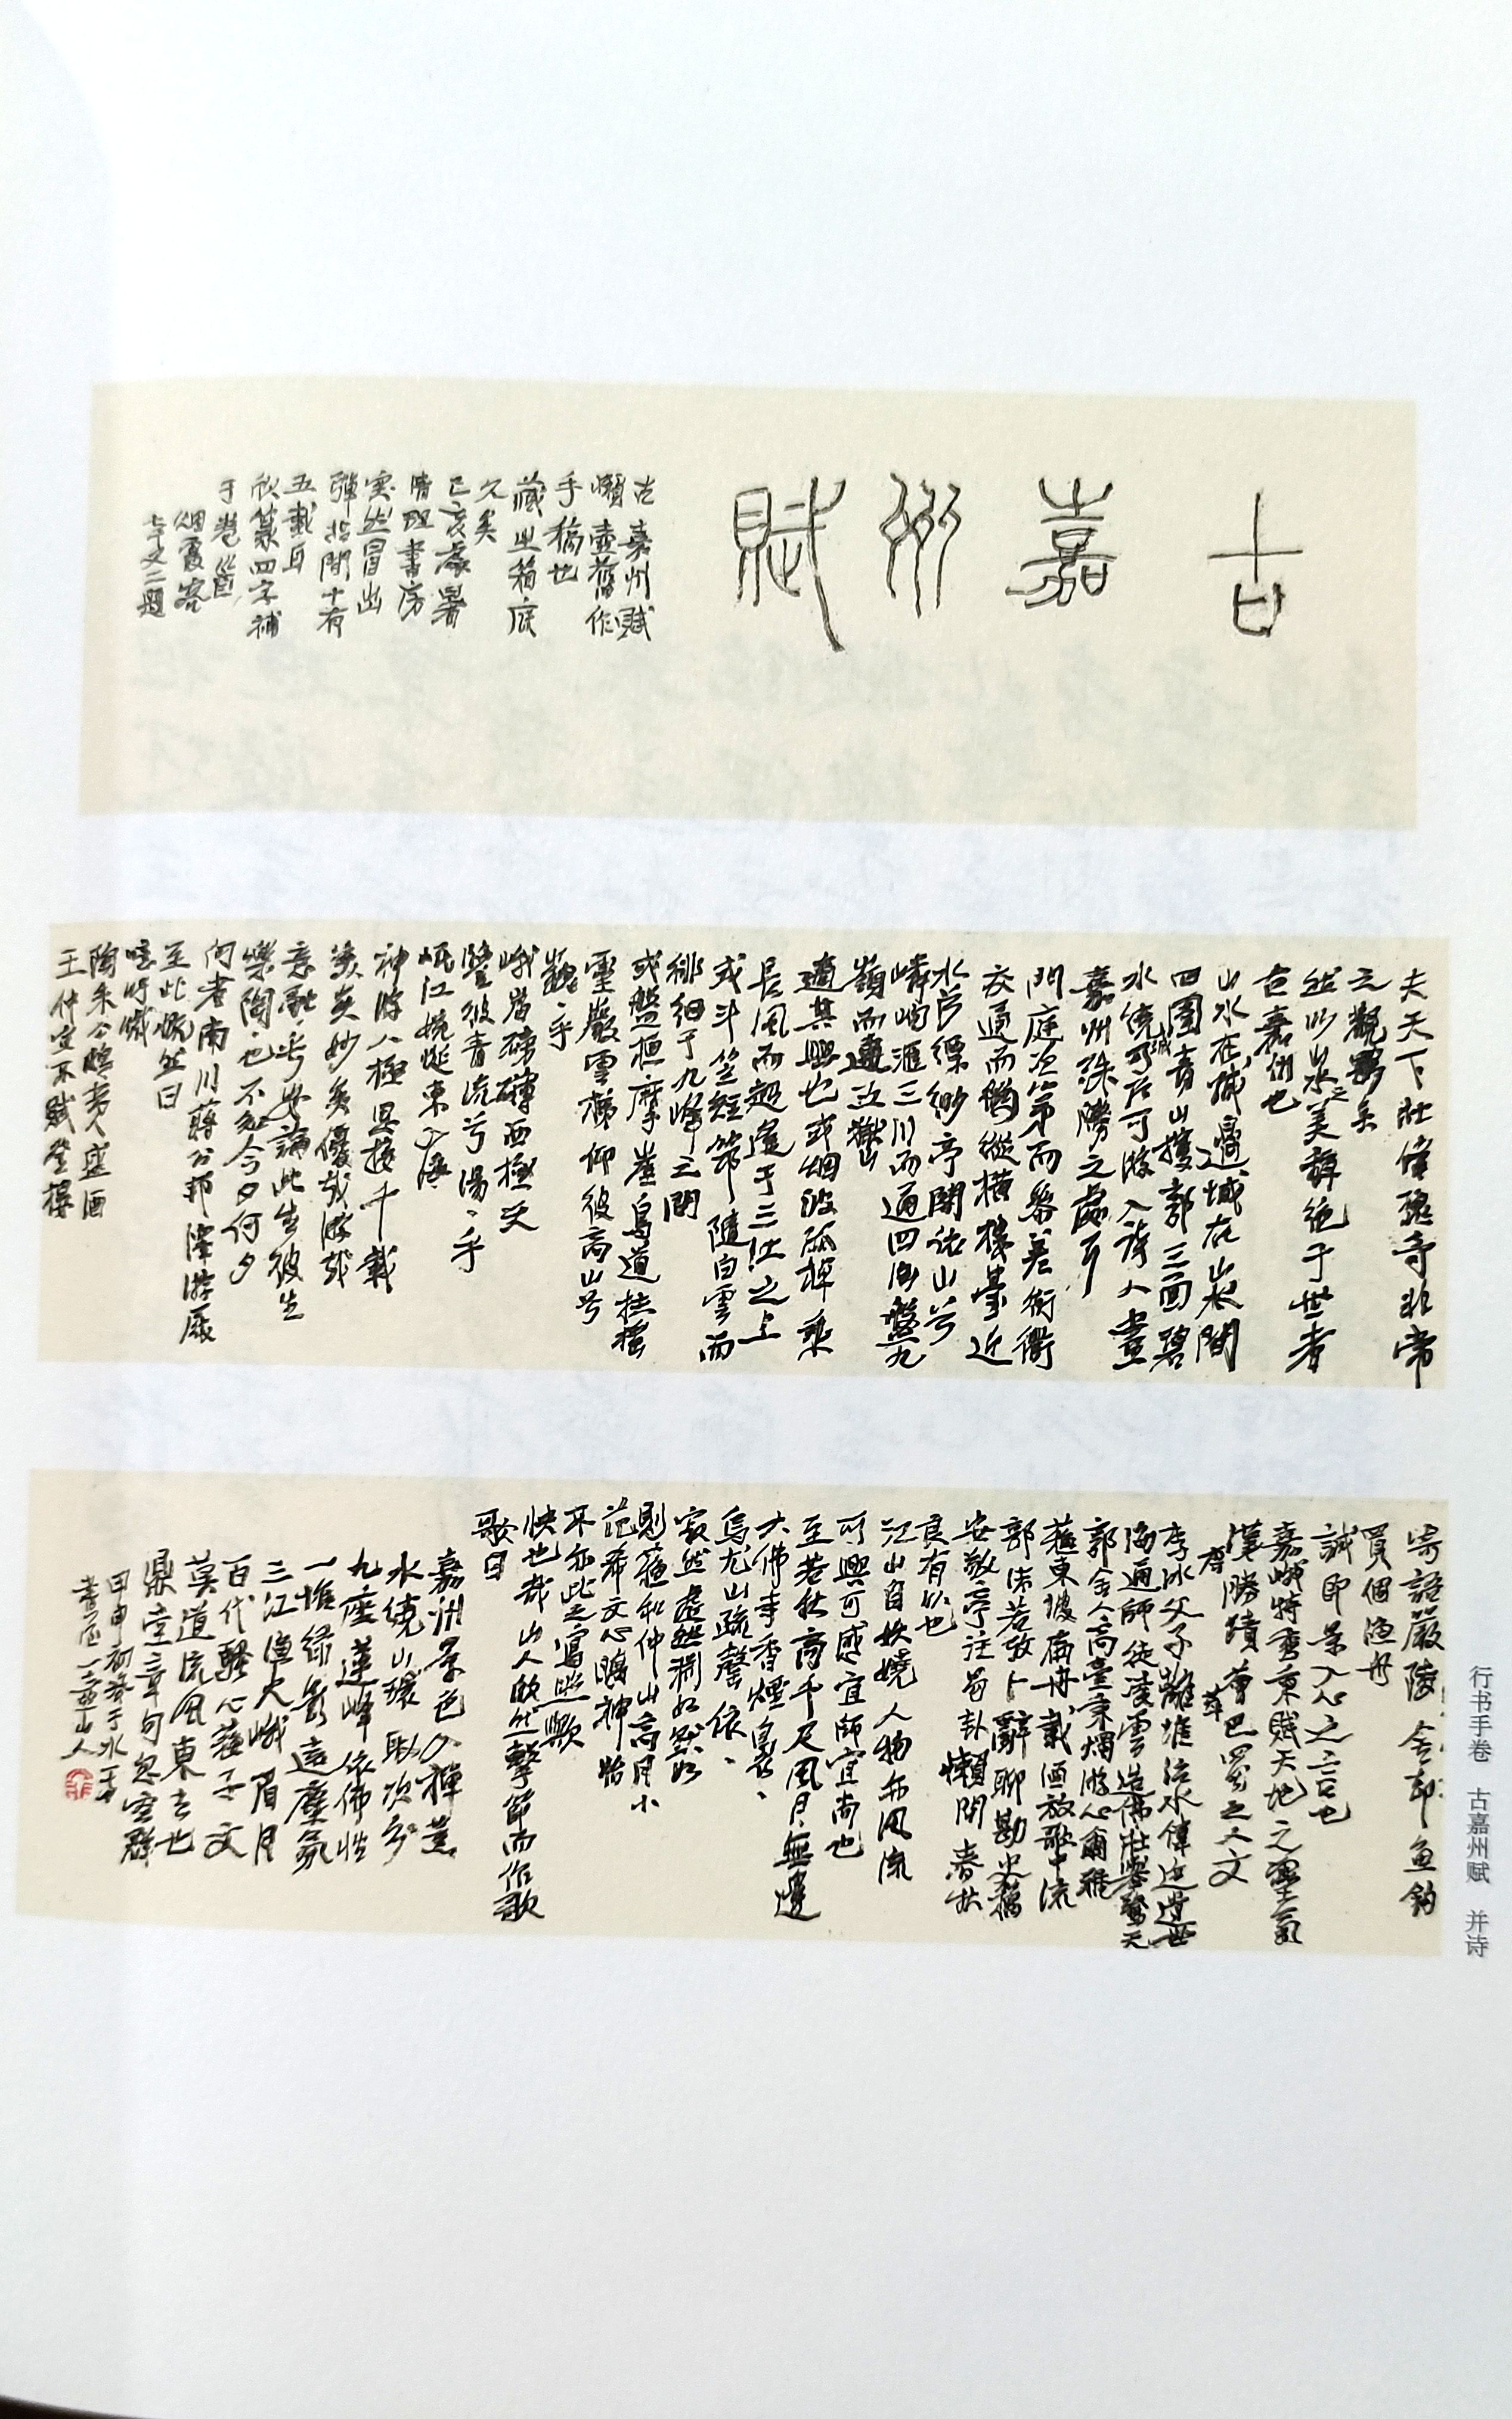 古嘉州賦
古嘉州賦
懶壺舊作
手稿也
藏之箱底
久矣
己亥處暑
清理書房
突然冒出
彈指間十有
五載耳
欣篆四字補
于卷首
烟霞客
夫天下壯偉瑰奇非常
之觀夥矣
然以山水之美辭絕于世者
古嘉州也
山水在城邊城在山水間
四圍青山擁郭三面碧
水繞城可居可游入詩入畫
嘉州殊勝之處耳
門庭次第而參差街衢
衣通而縱橫樓臺近
水兮縹緲亭閣沽山兮
嶙峋滙三川而通四海盤九
嶺而連五嶽
適其興也或烟波孤棹乘
長風而超遙于三江之上
或斗笠短笻隨白雲而
徘徊于九峰之間
或盤桓摩崖鳥道扶搖
靈巖雲梯仰彼高山兮
巍巍乎
峨眉磅礴西極天
鑒彼青流兮湯湯乎
岷江蜿蜒東入海
神游八極思接千載
美矣妙矣優哉游哉
意融乎與論此生彼生
樂陶陶也不知今夕何夕
向者南川蔣公邦澤游屐
至此慨然曰
嗟呼噫
陶朱公臨夷盛酒
王仲宣不賦登樓
寄語嚴陵舍却魚鈎
買個漁舟
誠即景入心之言也
嘉峨特秀秉賦天地之靈氣
漢唐勝蹟薈萃巴蜀之人文
李冰父子離堆治水偉迹遺世
海通師徒凌雲造佛壯舉驚天
郭舍人高臺秉燭游心爾雅
蘇東坡扁舟載酒放歌中流
郭沫若攷卜辭聊勘史稿
安敬亭注易卦懶問春秋
良有以也
江山自妖嬈人物亦風流
可興可感宜師宜尚也
至若秋高千尺風月無邊
大佛寺香煙裊裊
烏尤山疏磬依依
寂然虛然淵如默如
則蘇和仲山高月小
范希文心曠神怡
不如此之寫照歟
快也哉山人欣然擊節而作歌
歌曰
嘉州景色入禪葉
水繞山環臥次分
九座蓮峰依佛性
一帷綠影遠塵氛
三江漁火峨眉月
百代騷心蘇子文
莫道流風東去也
鼎堂章句忽空群
甲申初冬于水
書屋一壺山人
行书手卷 古嘉州赋 并诗